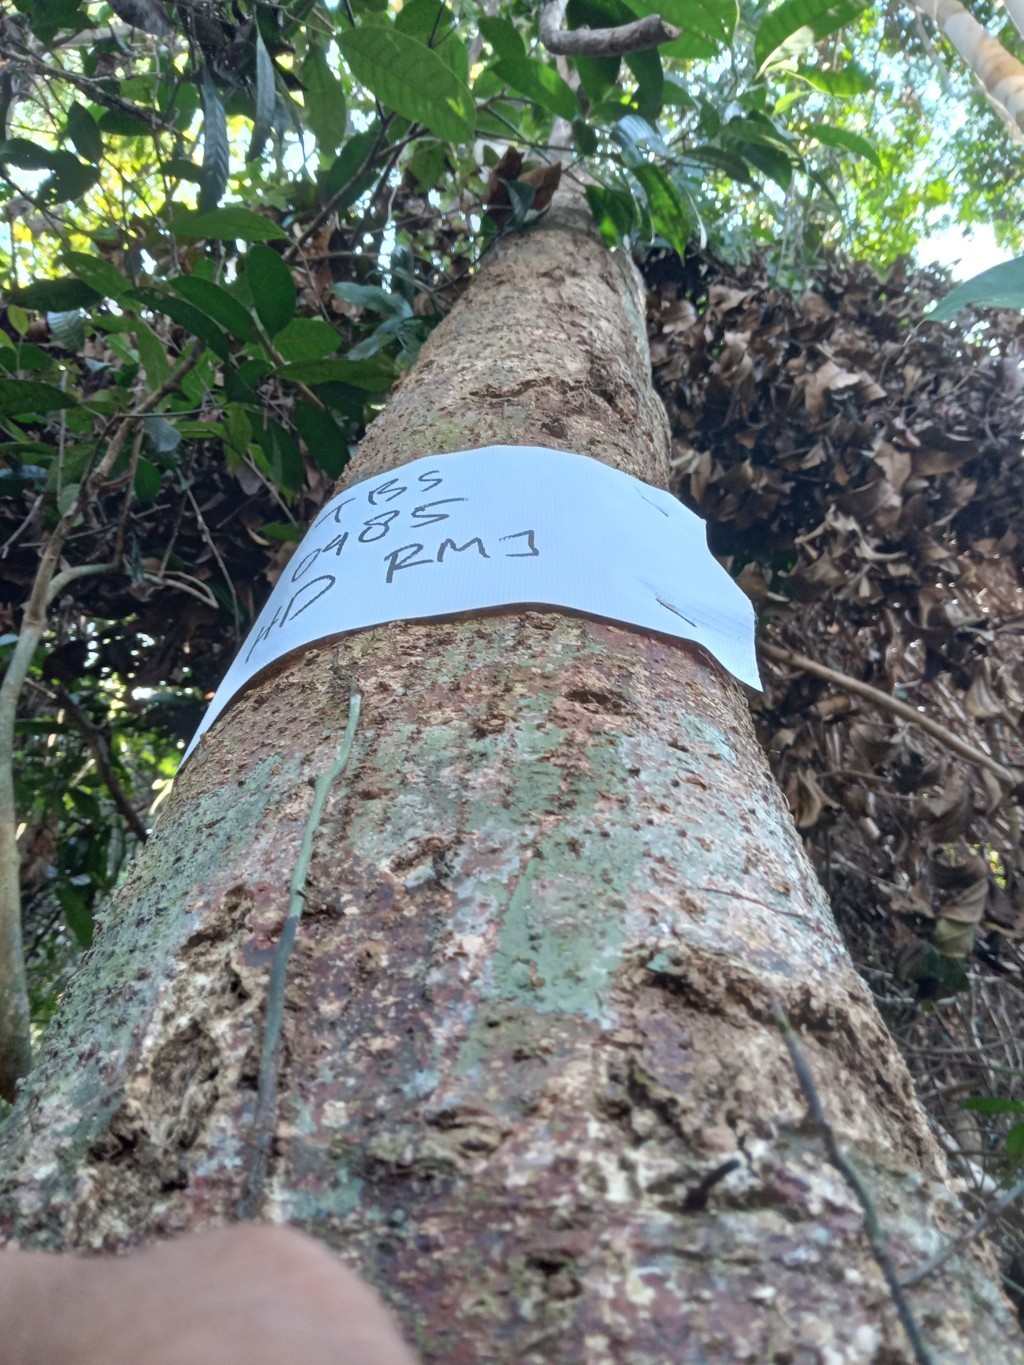 TBS
0485
HD RMJ